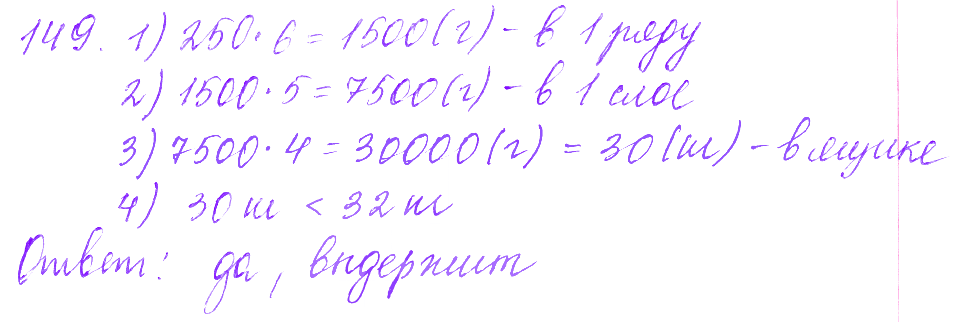 149. 1) 250 · 6 = 1500 (г) - в 1 ряду
2) 1500 · 5 = 7500 (г) - в 1 слое
3) 7500 · 4 = 30000 (г) = 30 (кг) - в ящике
4) 30 кг < 32 кг
Ответ: да, выдержит